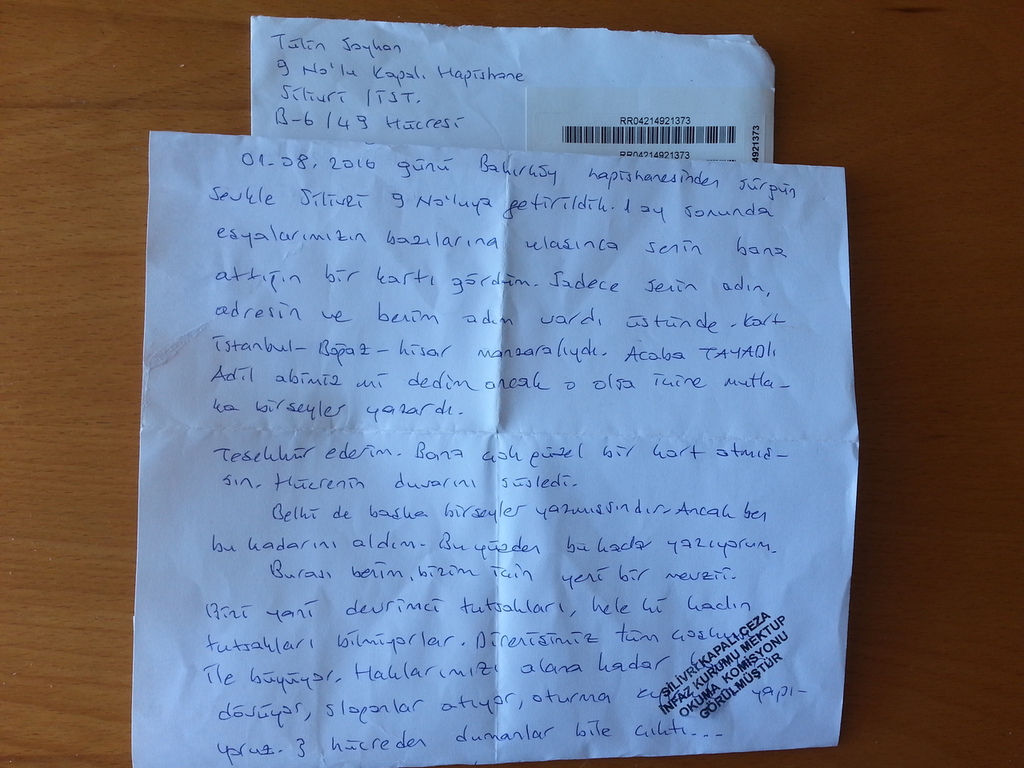 Tülin Sayhan
9 No'lu Kapalı Hapishane
Silivri / İST.
B-6 / 49 Hücresi
RR04214921373
RR04214921373
4921373
01-08. 2016 günü Bakırköy hapishanesinden sürgün
sevkle Silivri 9 No'luya getirildik. 1 ay sonunda
eşyalarımızın bazılarına ulaşınca senin bana
attığın bir kartı gördüm. Sadece senin adın,
adresin ve benim adım vardı üstünde. Kart
İstanbul - Boğaz - hisar manzaralıydı. Acaba TAYADlı
Adil abimiz mi dedim ancak o olsa içine mutla-
ka birşeyler yazardı.
Teşekkür ederim. Bana çok güzel bir kart atmış-
sın. Hücrenin duvarını süsledi.
Belki de başka birşeyler yazmışsındır. Ancak ben
bu kadarını aldım. Bu yüzden bu kadar yazıyorum.
Burası benim, bizim için yeni bir mevzii.
Bizi yani devrimci tutsakları, hele ki kadın
tutsakları bilmiyorlar. Direnişimiz tüm
ile büyüyor. Haklarımızı alana kadar
dövüyor, sloganlar atıyor, oturma yapı-
yoruz. 3 hücreden dumanlar bile çıktı...
SİLİVRİ KAPALI CEZA
İNFAZ KURUMU MEKTUP
OKUMA KOMİSYONU
GÖRÜLMÜŞTÜR